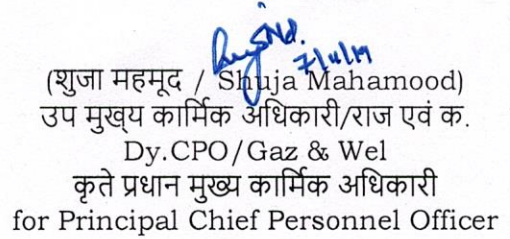 7/11/19
(शुजा महमूद / Shuja Mahamood)
उप मुख्य कार्मिक अधिकारी/राज एवं क.
Dy.CPO/Gaz & Wel
कृते प्रधान मुख्य कार्मिक अधिकारी
for Principal Chief Personnel Officer